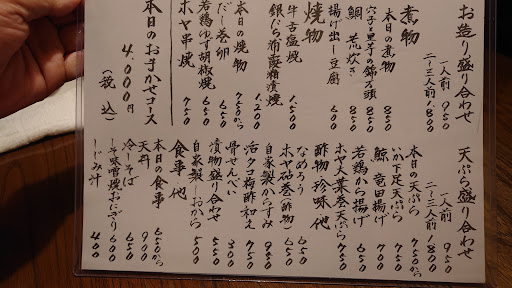 お造り盛り合わせ
一人前 950
二〜三人前 1,800
煮物
本日の煮物 850
穴子と里芋の錦万頭 850
鯛 荒炊き 850
揚げ出し豆腐
焼物
牛古塩焼 1,500
銀だら西京粕漬焼 1,200
本日の焼物 750から
だし巻卵 650
若鶏ゆず胡椒焼 650
ホヤ串焼 750
本日のおまかせコース
4,000円
(税込)
天ぷら盛り合わせ
一人前 950
二〜三人前 1,800
本日の天ぷら 750から
いか下足天ぷら 750
鯨 竜田揚げ 700
若鶏から揚げ 650
ホヤ大葉巻天ぷら 750
酢物 珍味 他
なめろう 650
ホヤ砧巻(酢物) 650
自家製からすみ 950
活タコ梅酢和え 750
骨せんべい 300
漬物盛り合せ 550
自家製しおから 500
食事 他
本日の食事 650から
天丼 900
冷しそば 600
しそ味噌焼おにぎり 650
しじみ汁 400